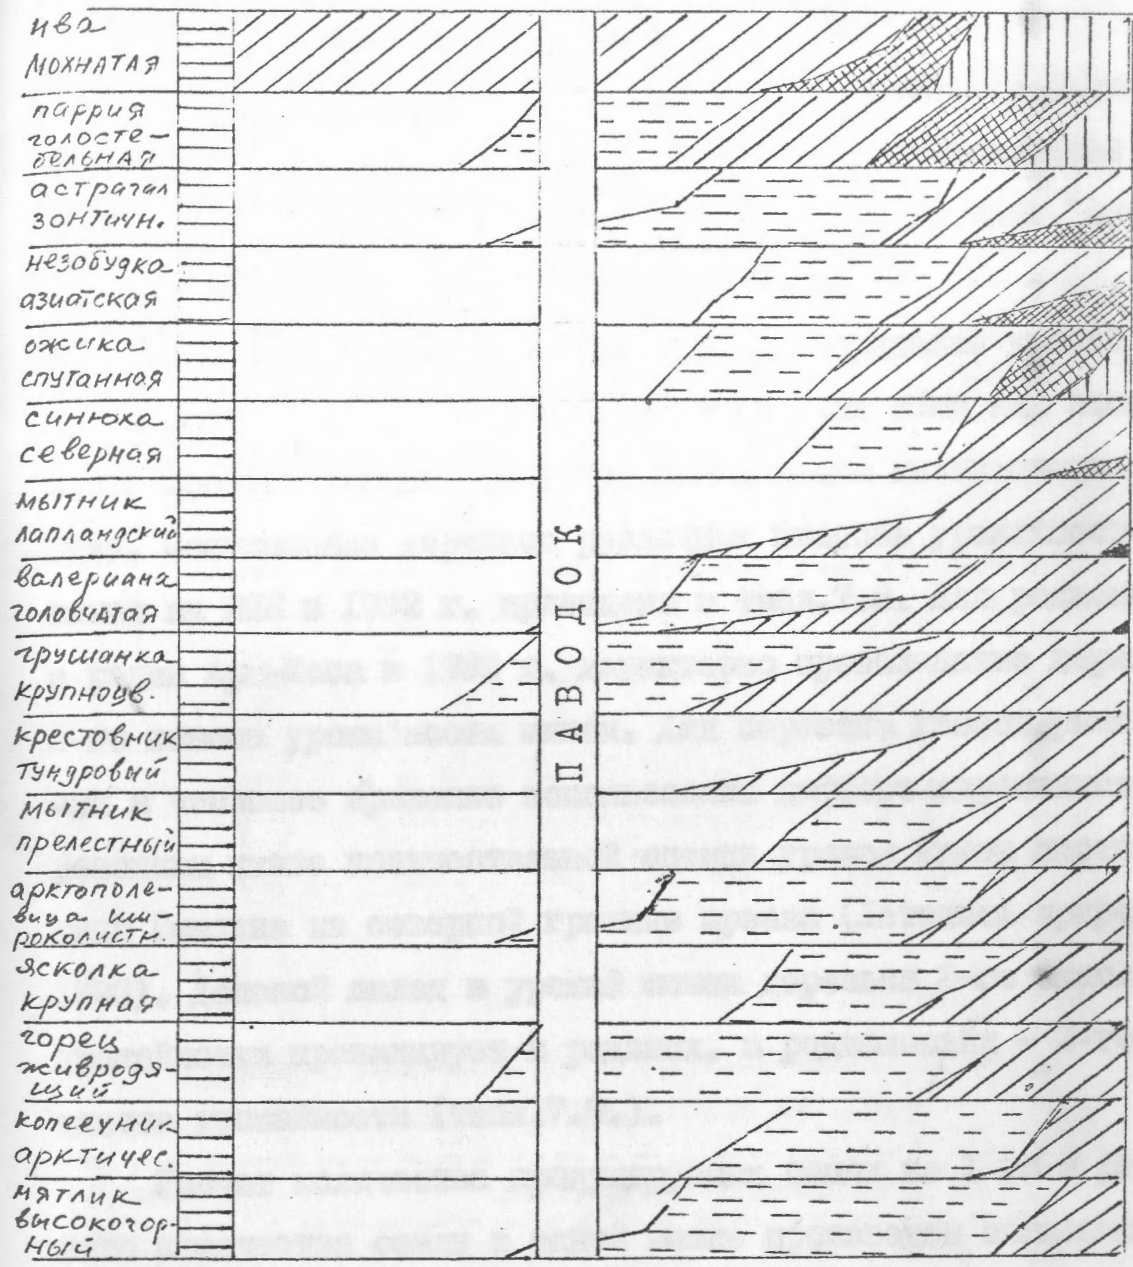 ива
мохнатая
паррия
голосте-
бельная
астрагал
зонтичн.
незабудка
азиатская
ожика
спутанная
синюха
северная
мытник
лапландский
валериана
головчатая
грушанка
крупноцв.
крестовник
тундровый
мытник
прелестный
арктополе-
вица ши-
роколистн.
ясколка
крупная
горец
живродя-
щий
копеечник
арктичес.
мятлик
высокогор-
ный
ПАВОДОК